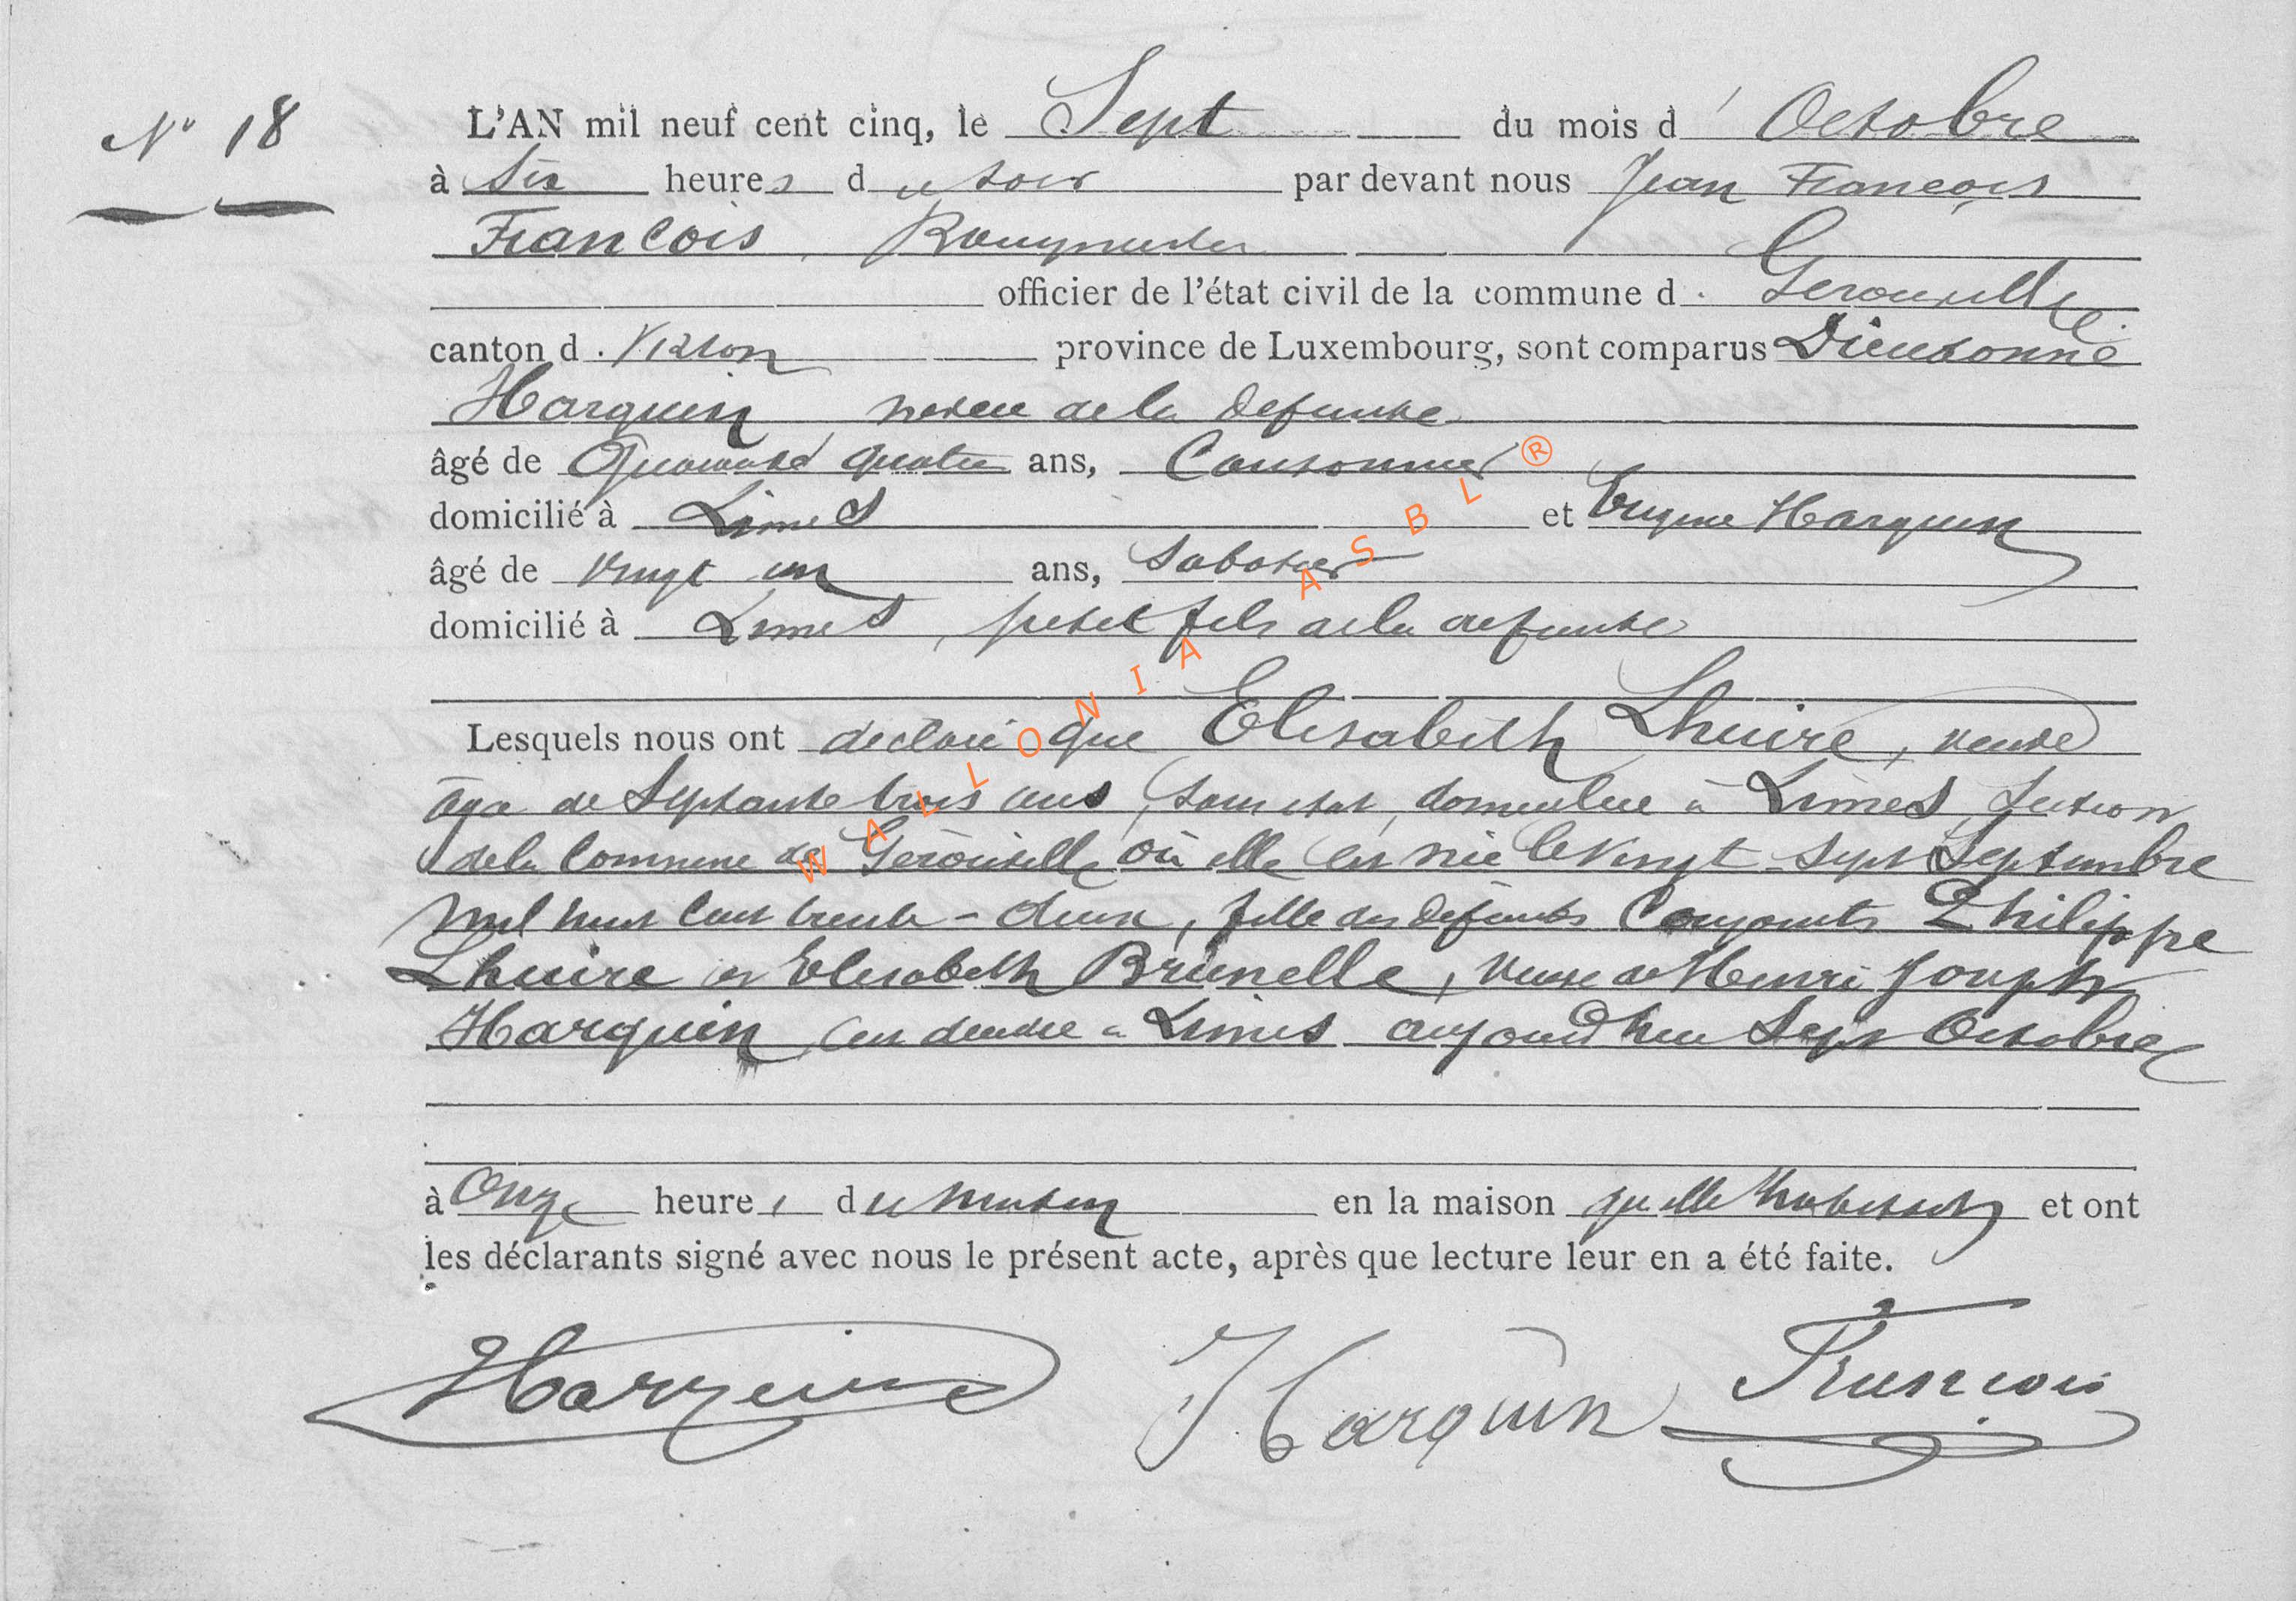 N° 18
L'AN mil neuf cent cinq, le Sept du mois d' Octobre
à Six heures du soir par devant nous Jean François
François, Bourgmestre
officier de l'état civil de la commune d. Gerouville
canton d. Virton province de Luxembourg, sont comparus Dieudonné
Harquin neveu de la defunte
âgé de Quarante quatre ans, Cantonnier
domicilié à Limes et Eugene Harquin
âgé de Vingt un ans, Sabotier
domicilié à Limes, petit fils de la defunte
Lesquels nous ont declaré que Elisabeth Lhuire, veuve
âgée de Septante trois ans, sans etat, domiciliee à Limes, section
de la Commune de Gerouville où elle est née le Vingt-sept Septembre
mil huit cent trente-deux, fille des défunts Conjoints Philippe
Lhuire et Elisabeth Brunelle, Veuve de Henri Joseph
Harquin, est decedee a Limes aujourd'hui Sept Octobre
à Onze heures du matin en la maison qu'elle habitait et ont
les déclarants signé avec nous le présent acte, après que lecture leur en a été faite.
Harquin Harquin François
WALLONIA ASBL ®